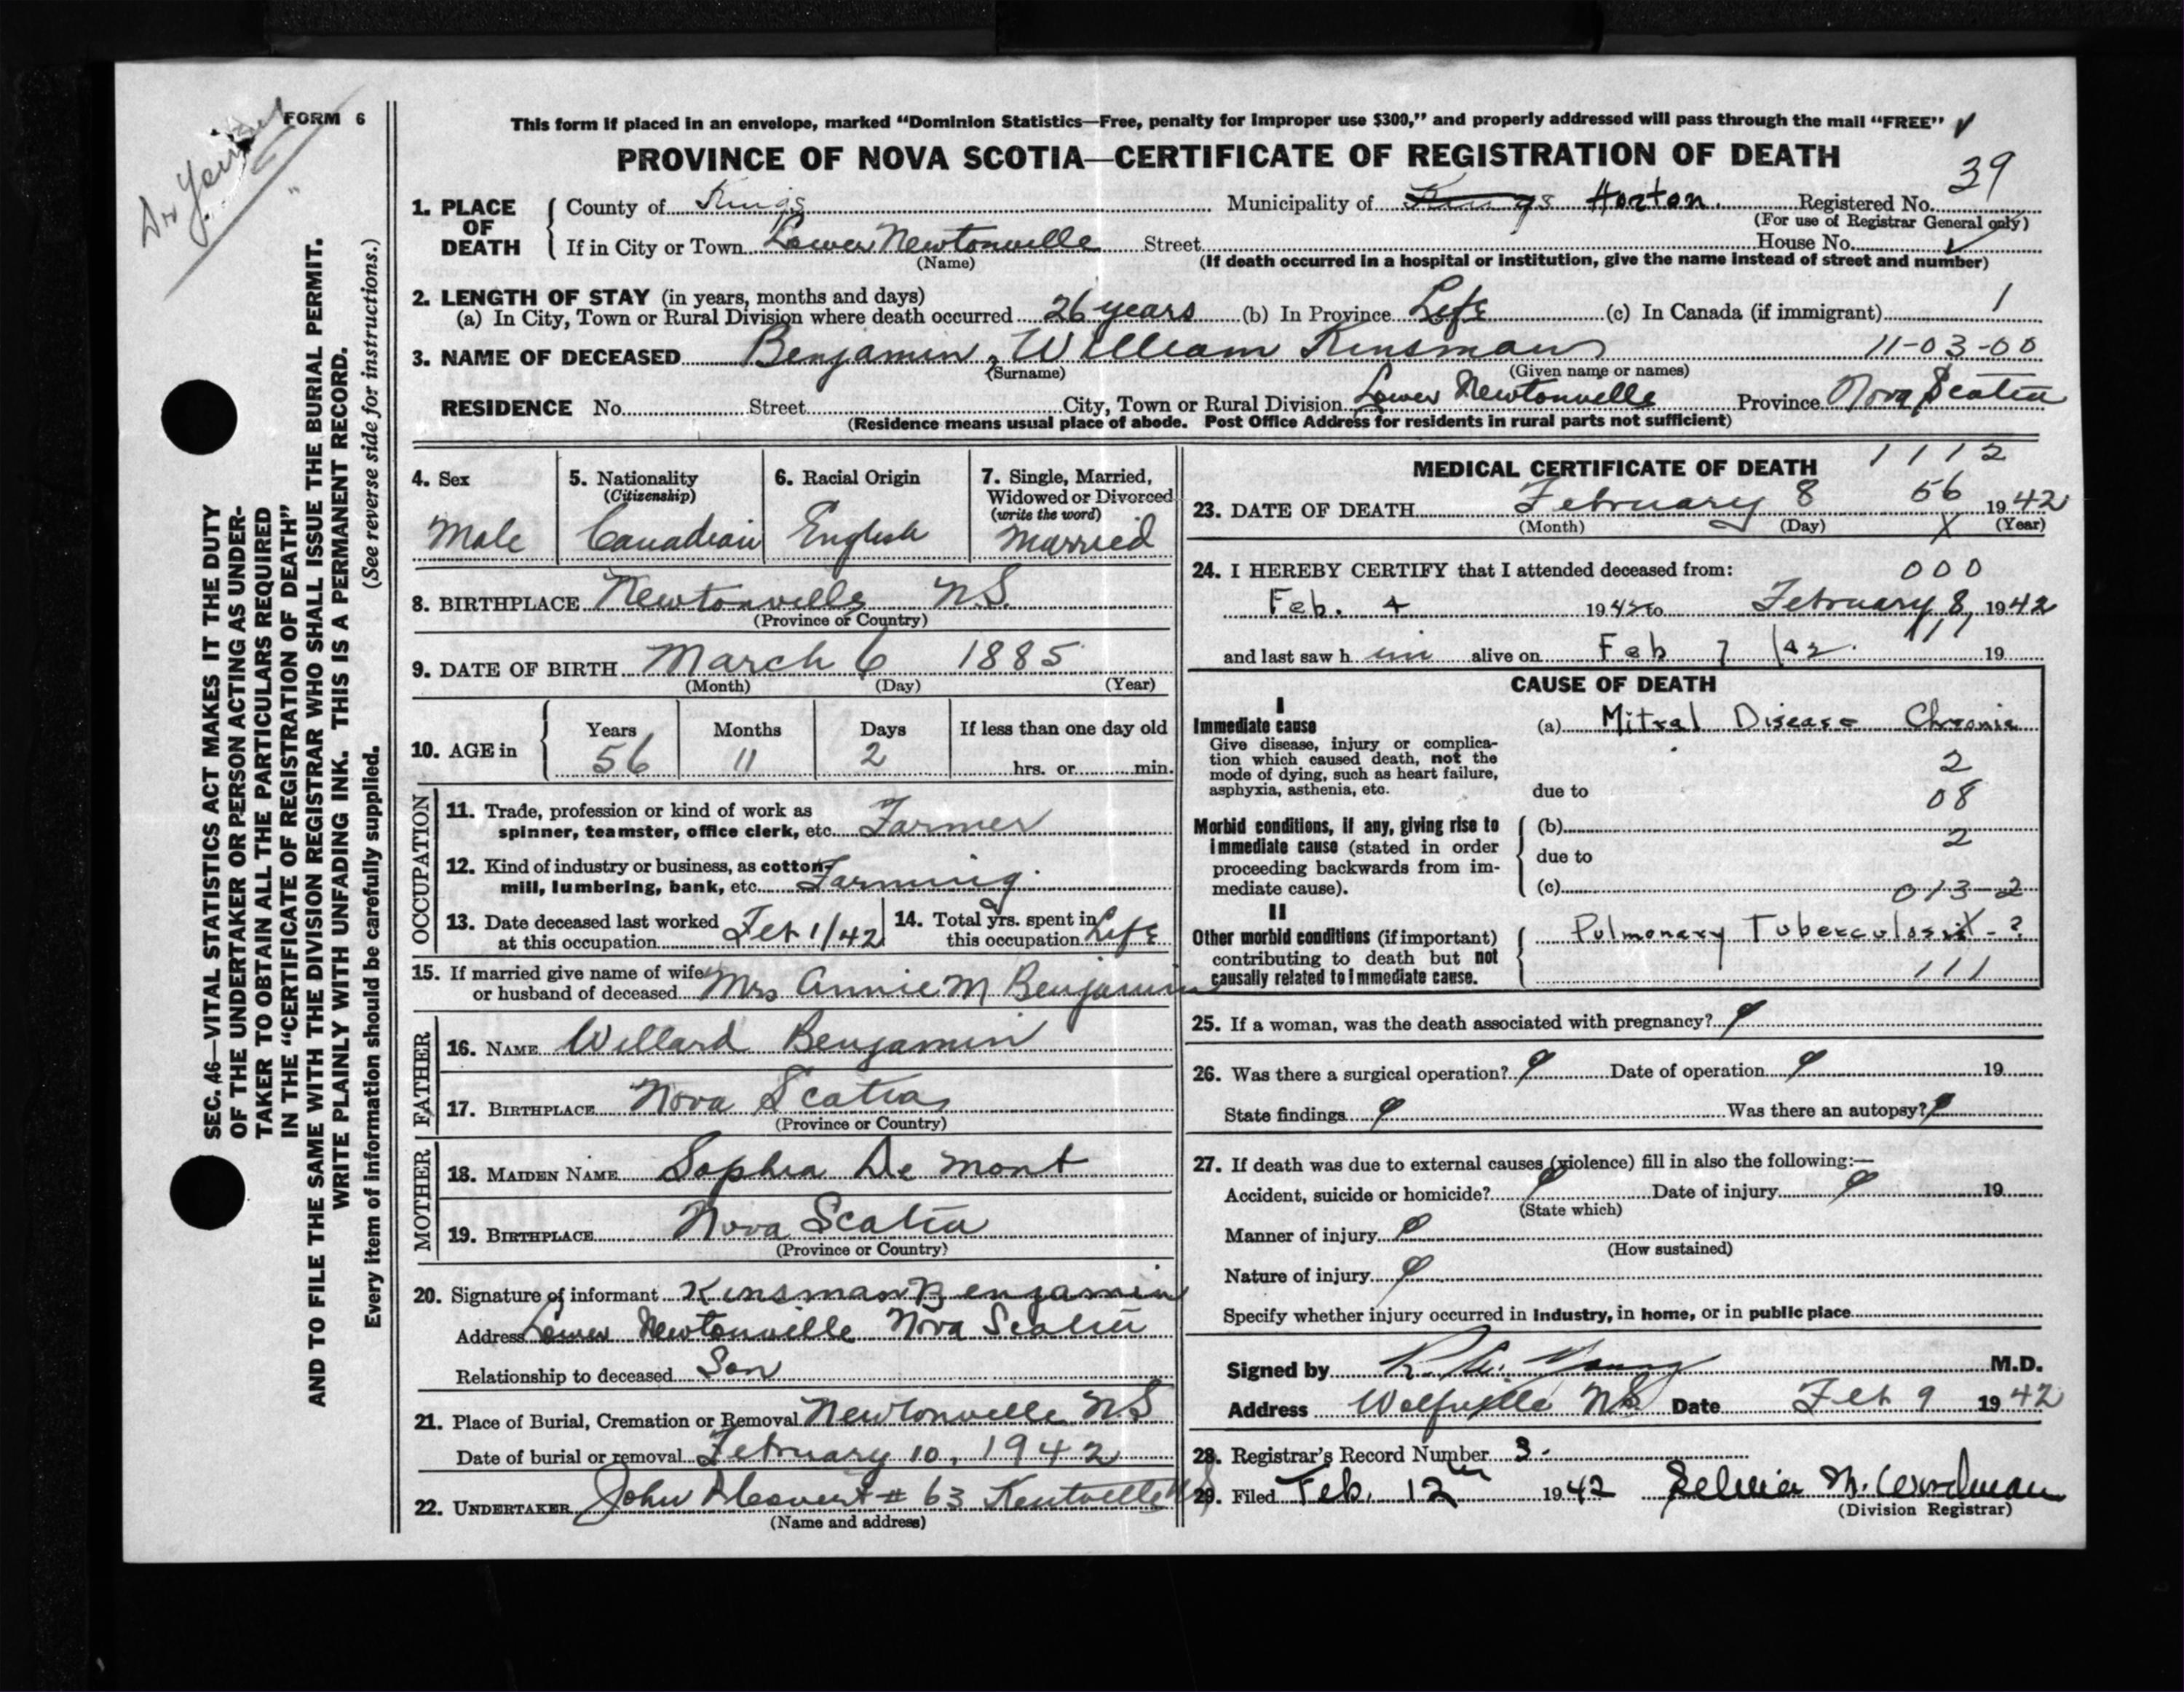 FORM 6
This form if placed in an envelope, marked "Dominion Statistics—Free, penalty for improper use $300," and properly addressed will pass through the mail "FREE"
PROVINCE OF NOVA SCOTIA—CERTIFICATE OF REGISTRATION OF DEATH
39
1. PLACE OF DEATH
County of Kings Municipality of Kings Horton. Registered No.
(For use of Registrar General only)
If in City or Town Lower Newtonville Street House No.
(Name) (If death occurred in a hospital or institution, give the name instead of street and number)
2. LENGTH OF STAY (in years, months and days)
(a) In City, Town or Rural Division where death occurred 26 years (b) In Province Life (c) In Canada (if immigrant) 1
3. NAME OF DECEASED Benjamin, William Kinsman 11-03-00
(Surname) (Given name or names)
RESIDENCE No. Street City, Town or Rural Division Lower Newtonville Province Nova Scotia
(Residence means usual place of abode. Post Office Address for residents in rural parts not sufficient)
4. Sex
Male
5. Nationality
(Citizenship)
Canadian
6. Racial Origin
English
7. Single, Married,
Widowed or Divorced
(write the word)
Married
8. BIRTHPLACE Newtonville N.S.
(Province or Country)
9. DATE OF BIRTH March 6 1885
(Month) (Day) (Year)
10. AGE in
Years Months Days If less than one day old
56 11 2 hrs. or min.
OCCUPATION
11. Trade, profession or kind of work as
spinner, teamster, office clerk, etc. Farmer
12. Kind of industry or business, as cotton-
mill, lumbering, bank, etc. Farming.
13. Date deceased last worked
at this occupation Feb 1/42
14. Total yrs. spent in
this occupation Life
15. If married give name of wife
or husband of deceased Mrs Annie M Benjamin
FATHER
16. NAME Willard Benjamin
17. BIRTHPLACE Nova Scotia
(Province or Country)
MOTHER
18. MAIDEN NAME Sophia De Mont
19. BIRTHPLACE Nova Scotia
(Province or Country)
20. Signature of informant Kinsman Benjamin
Address Lower Newtonville Nova Scotia
Relationship to deceased Son
21. Place of Burial, Cremation or Removal Newtonville N.S
Date of burial or removal February 10, 1942
22. UNDERTAKER John # 63 Kentville NS
(Name and address)
MEDICAL CERTIFICATE OF DEATH 1112
23. DATE OF DEATH February 8 56 1942
(Month) (Day) X (Year)
24. I HEREBY CERTIFY that I attended deceased from: 000
Feb. 4 1942 to February 8, 1942
111
and last saw him alive on Feb 7 /42. 19
CAUSE OF DEATH
I
Immediate cause (a) Mitral Disease Chronic
Give disease, injury or complica-
tion which caused death, not the
mode of dying, such as heart failure,
asphyxia, asthenia, etc. due to
2
08
Morbid conditions, if any, giving rise to
immediate cause (stated in order
proceeding backwards from im-
mediate cause).
(b)
2
due to
(c) 013-2
II
Other morbid conditions (if important)
contributing to death but not
causally related to immediate cause.
Pulmonary Tuberculosis - ?
111
25. If a woman, was the death associated with pregnancy?
26. Was there a surgical operation? Date of operation 19
State findings Was there an autopsy?
27. If death was due to external causes (violence) fill in also the following:—
Accident, suicide or homicide? Date of injury 19
(State which)
Manner of injury
(How sustained)
Nature of injury
Specify whether injury occurred in industry, in home, or in public place
Signed by Young M.D.
Address Wolfville NS Date Feb 9 1942
28. Registrar's Record Number 3.
29. Filed Feb. 12th 1942 M. Woodman
(Division Registrar)
SEC. 46—VITAL STATISTICS ACT MAKES IT THE DUTY
OF THE UNDERTAKER OR PERSON ACTING AS UNDER-
TAKER TO OBTAIN ALL THE PARTICULARS REQUIRED
IN THE "CERTIFICATE OF REGISTRATION OF DEATH"
AND TO FILE THE SAME WITH THE DIVISION REGISTRAR WHO SHALL ISSUE THE BURIAL PERMIT.
WRITE PLAINLY WITH UNFADING INK. THIS IS A PERMANENT RECORD.
Every item of information should be carefully supplied. (See reverse side for instructions.)